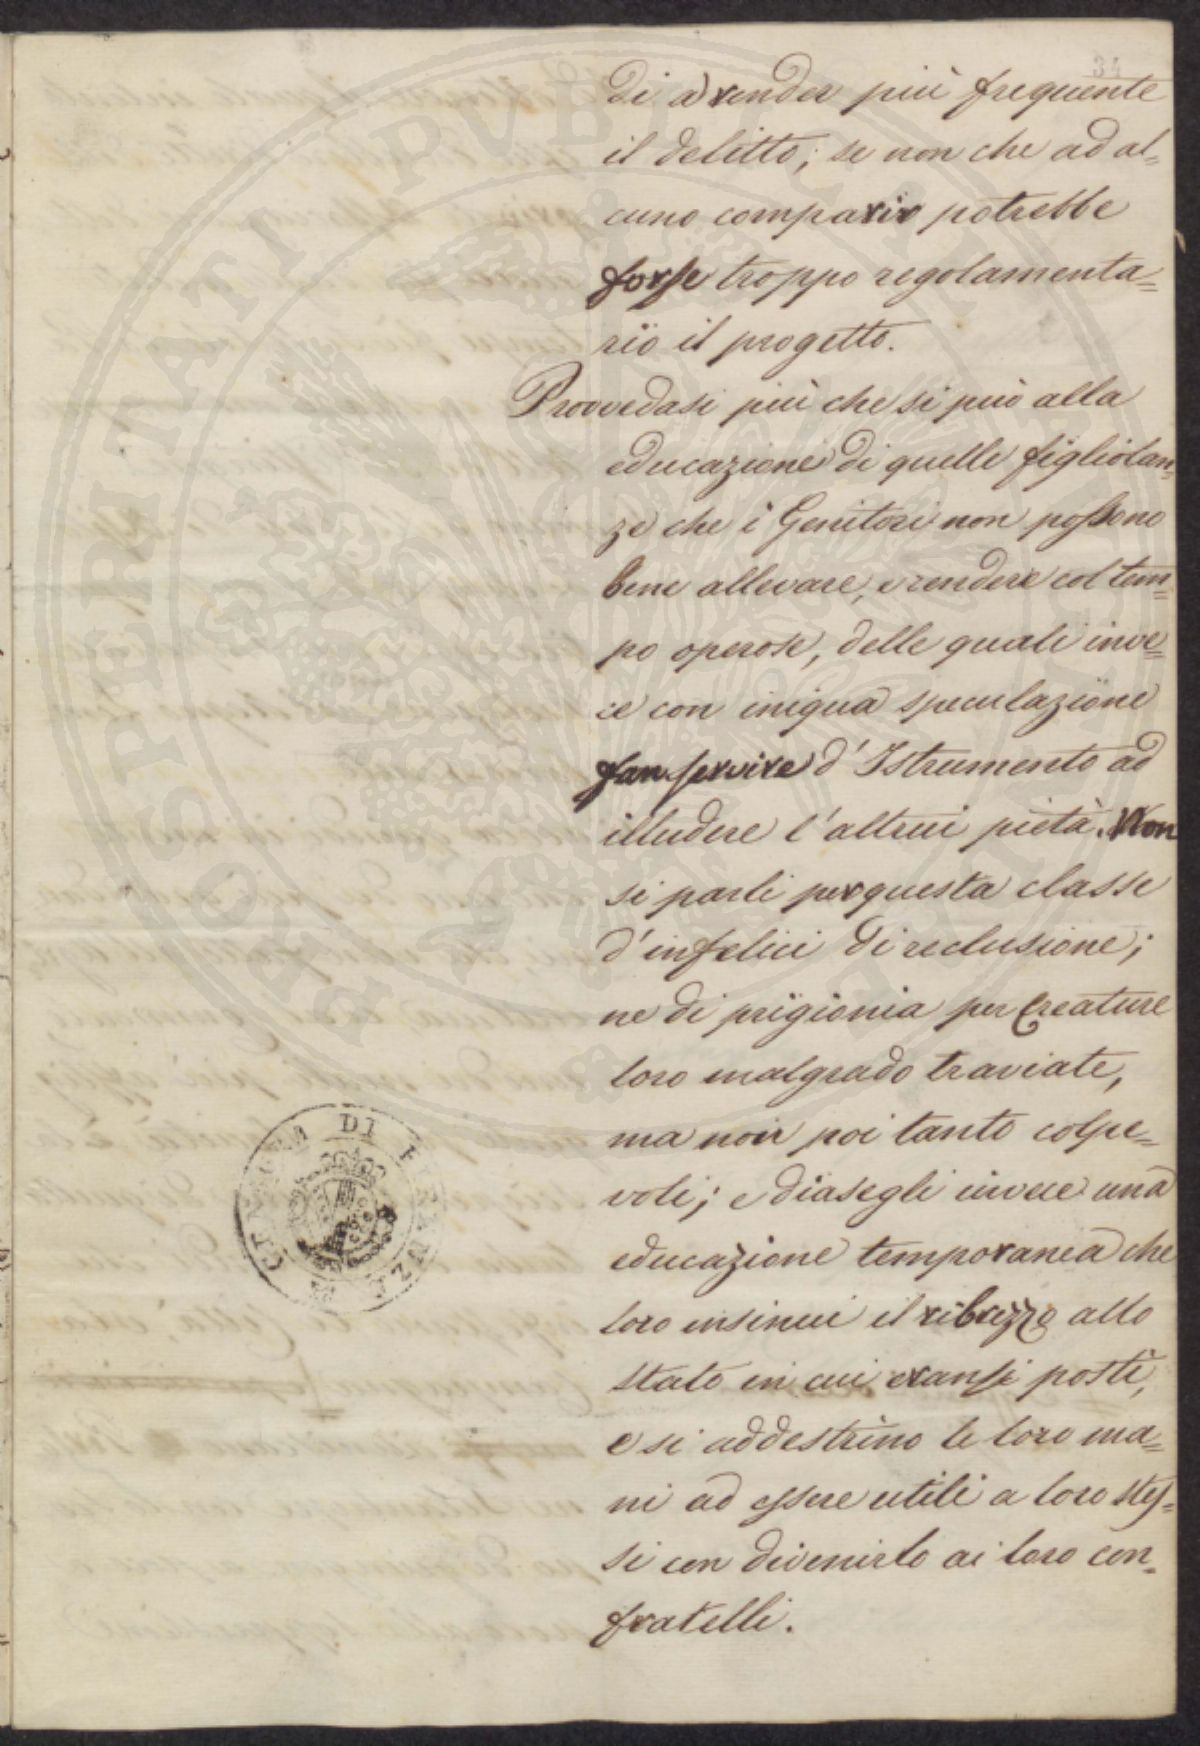 34
di a render più frequente
il delitto; se non che ad al=
cuno comparir potrebbe
forse troppo regolamenta=
rio il progetto.
Provvedasi più che si può alla
educazione di quelle figliolan=
ze che i Genitori non possono
bene allevare, e rendere col tem=
po operose, delle quali inve=
ce con iniqua speculazione
fan servire d'Istrumento ad
illudere l'altrui pietà. Non
si parli per questa classe
d'infelici di reclusione;
ne di prigionia per Creature
loro malgrado traviate,
ma non poi tanto colpe=
voli; e diasegli invece una
educazione temporanea che
loro insinui il ribrezzo allo
stato in cui eransi posti,
e si addestrino le loro ma=
ni ad essere utili a loro stes=
si con divenirlo ai loro con=
fratelli.
PROSPERITATI PVBLICAE
DI